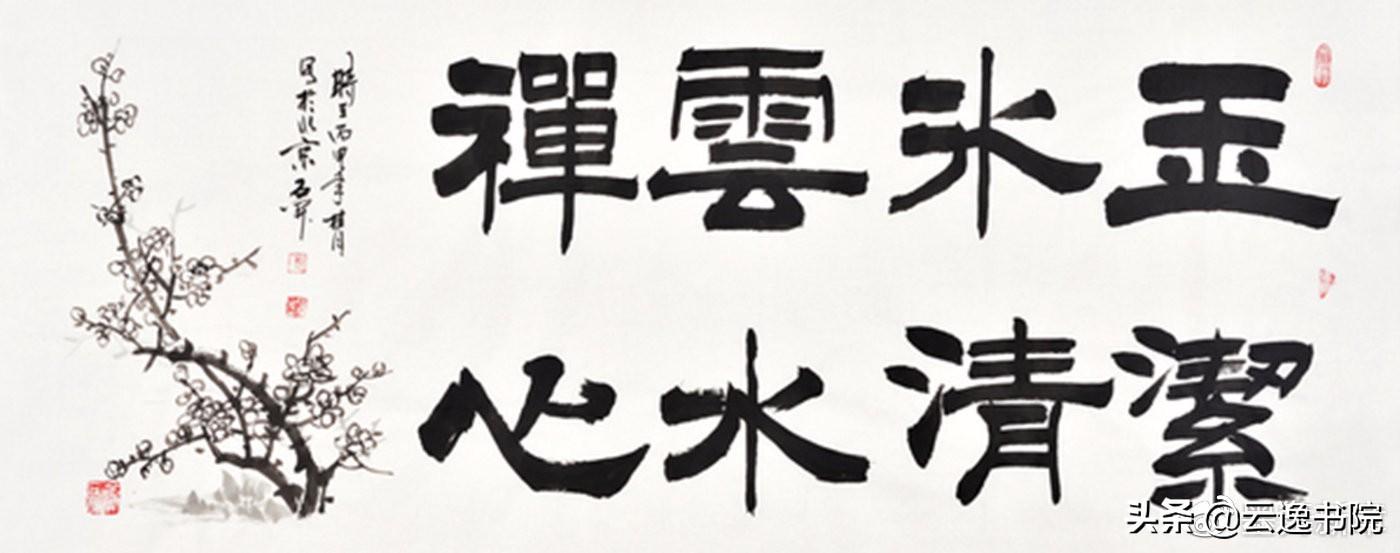 玉潔
氷清
雲水
禪心
時在丙申年桂月
写於北京
头条 @云逸书院